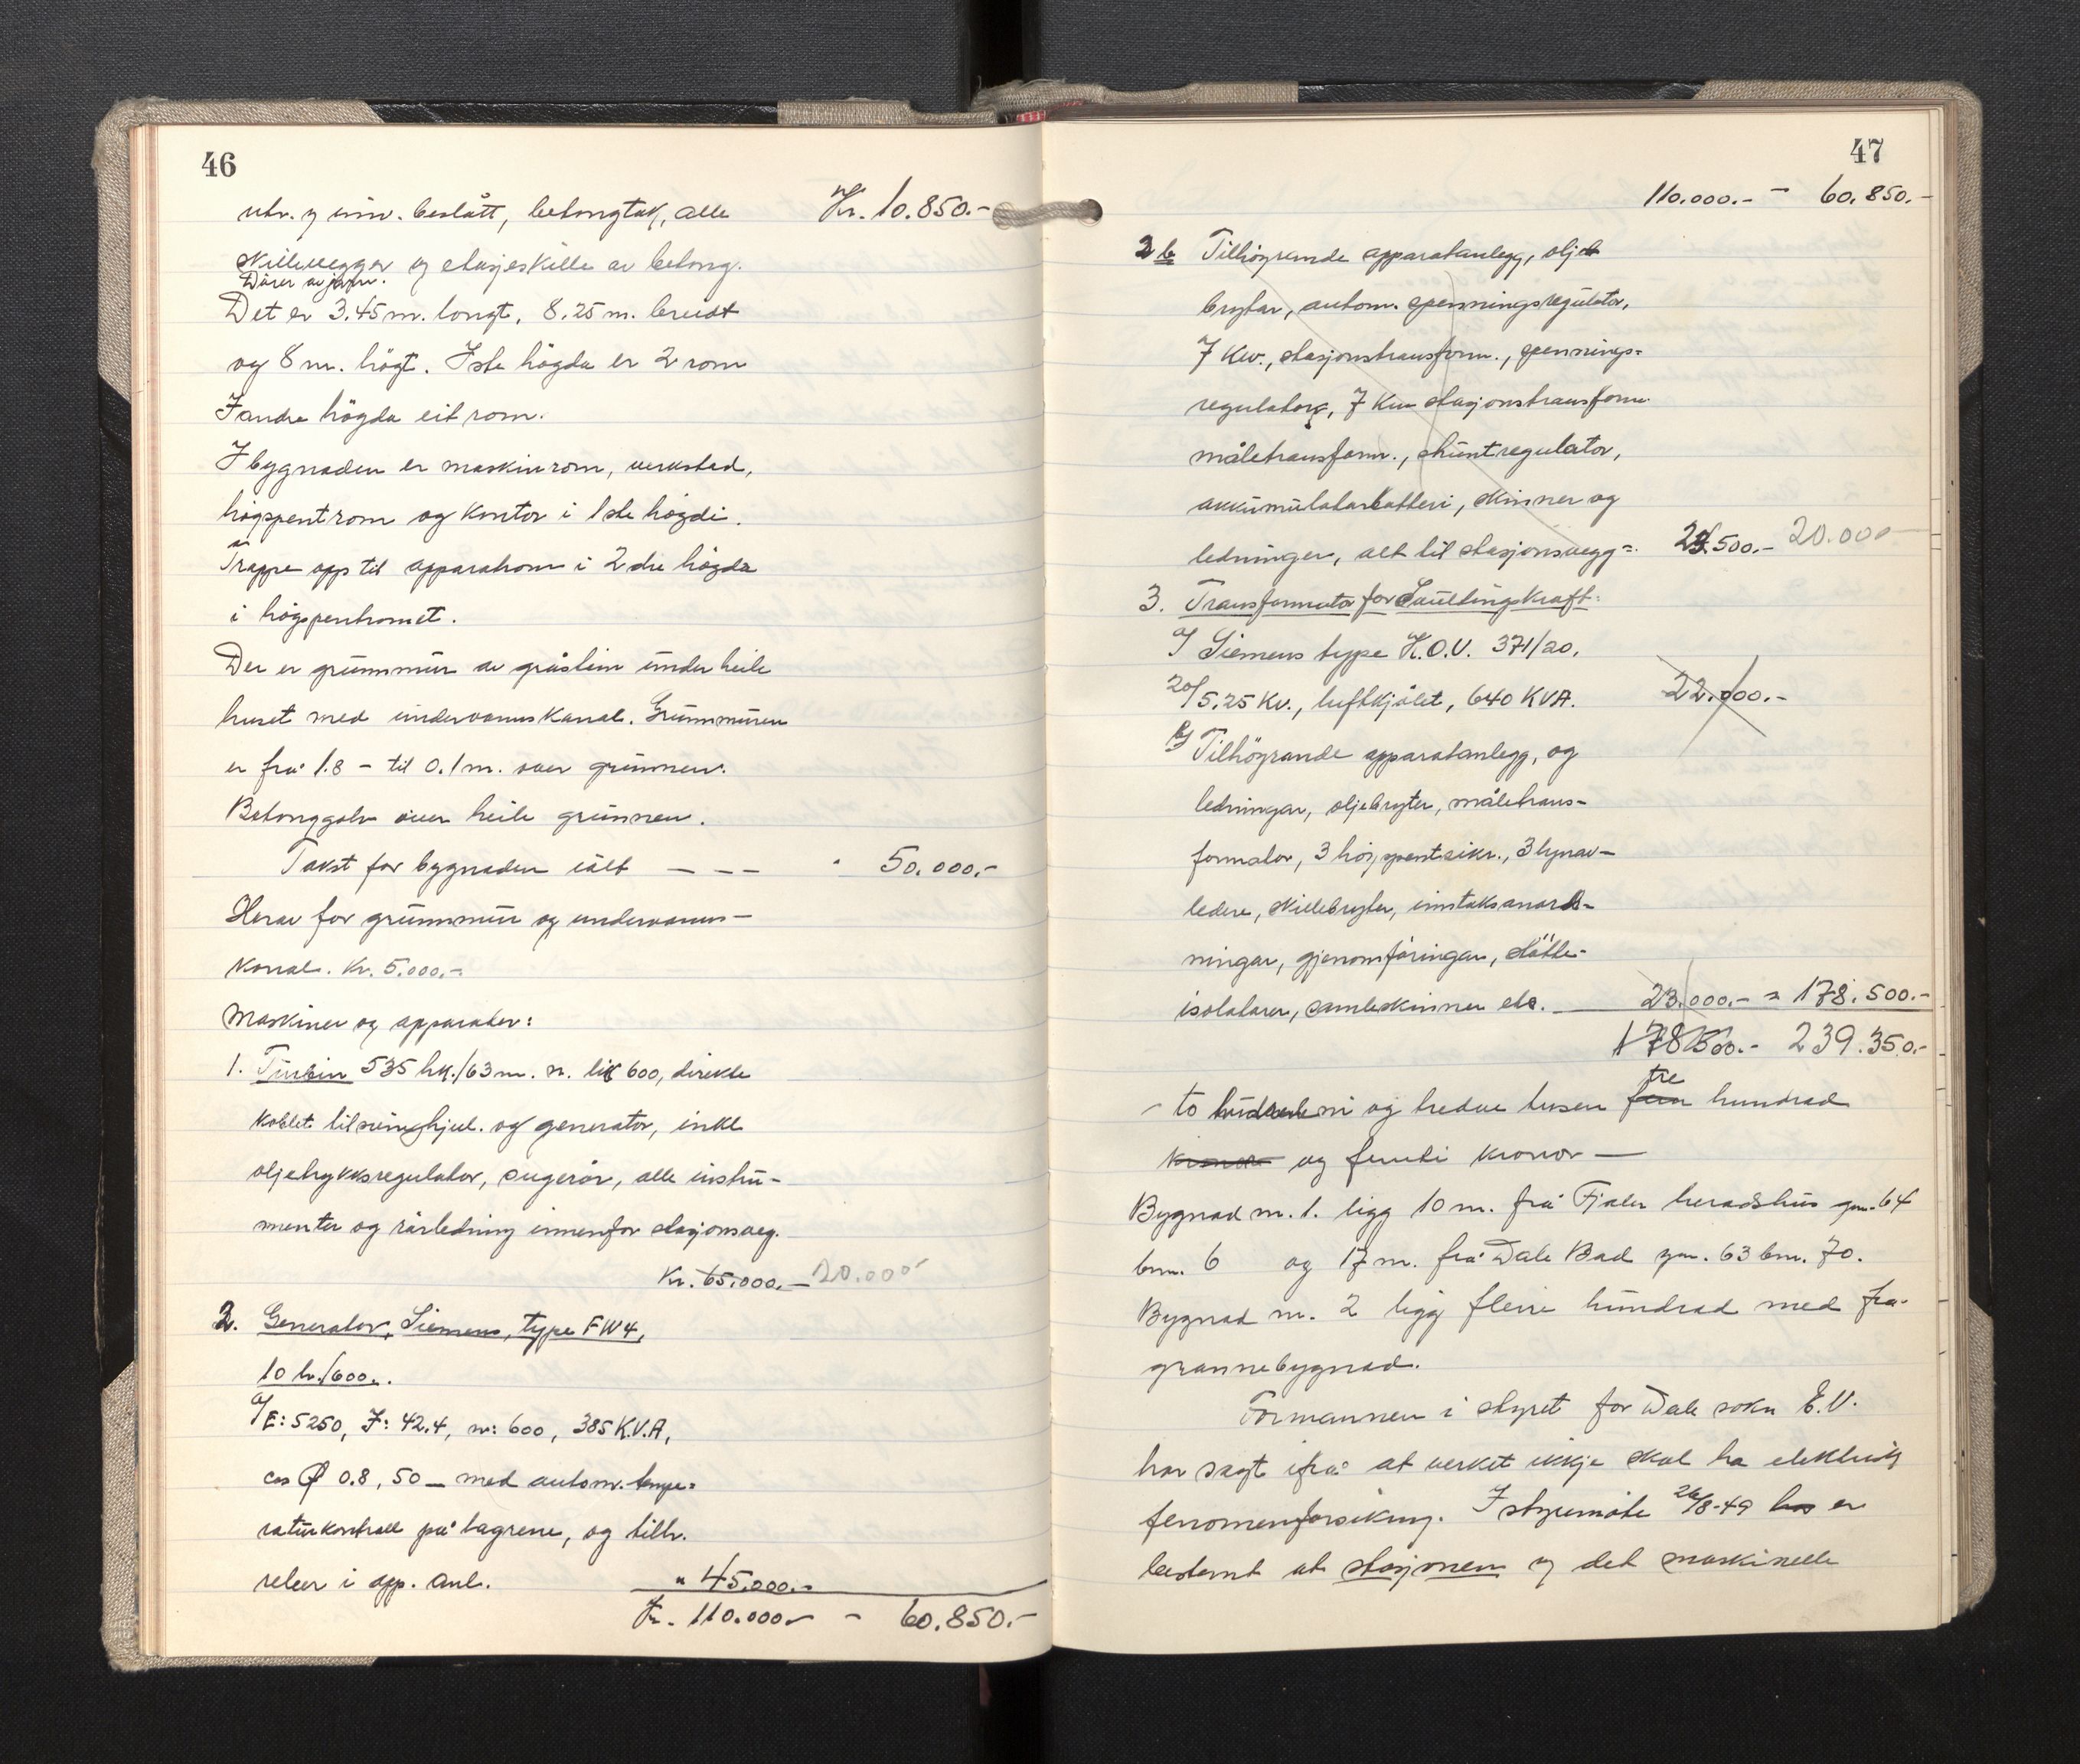 46
utv. og innv. beslått, betongtak, alle Kr. 10.850.-
skillevegger og etasjeskille av betong.
Dörer av jern.
Det er 3.45 m. langt, 8.25 m. breidt
og 8 m. högt. I ste högda er 2 rom
I andre högda eit rom.
I bygnaden er maskinrom, verkstad,
högspentrom og kontor i 1ste högdi.
Trappe opp til apparatrom i 2dre högda
i högspentromet.
Der er grunnmur av gråstein under heile
huset med undervannskanal. Grunnmuren
er frå 1.8 - til 0.1 m. over grunnen.
Betonggolv over heile grunnen.
Takst for bygnaden ialt - - - " 50.000.-
Herav for grunnmur og undervanns-
kanal. Kr. 5.000.-
Maskiner og apparater:
1. Turbin 535 hk./63 m. n. lik 600, direkte
koblet til svinghjul. og generator, inkl
oljetrykksregulator, sugerör, alle instru-
menter og rörledning innenfor stasjonsveg.
Kr. 65.000.- 20.000
2. Generator, Siemens, type FW4,
10 hr./600.
a/ E: 5250, I: 42.4, n: 600, 385 K.V.A,
cos φ 0.8, 50 — med autom. tempe=
raturkontroll på lagrene, og tilh.
releer i app. anl. " 45.000.-
Kr. 110.000.- - 60.850.-
47
110.000.- - 60.850.-
2 b Tilhögrende apparatanlegg, olje
brytar, autom. spenningsregulator,
7 Kw., stasjonstransform., spennings=
regulator, 7 Kw stasjonstransform
måletransform., shuntregulator,
akkumulatorbatteri, skinner og
ledninger, alt til stasjonsvegg=. 500.- 20.000
3. Transformator for Saultingskraft:
a/ Siemens type K.O.V. 371/20,
20/5.25 Kv., luftkjölet, 640 KVA. 22.000.-
b/ Tilhögrande apparatanlegg, og
ledningar, oljebryter, måletrans-
formator, 3 högspentsikr., 3 lynav-
ledere, skillebryter, inntaksanord-
ningar, gjenomföringar, stötte-
isolatorer, samleskinner etc. 23.000.- = 178.500.-
178500.- 239.350.-
- to hundrad ni og tredve tusen fem tre hundrad
kronor og femti kronor —
Bygnad nr. 1. ligg 10 m. frå Fjaler heradshus gnr. 64
bnr. 6 og 17 m. frå Dale Bad gnr. 63 bnr. 70.
Bygnad nr. 2 ligg fleire hundrad med frå
grannebygnad.
Formannen i styret for Dale sokn E.V.
har sagt ifrå at verket ikkje skal ha elektrisk
fenomenforsikring. I styremöte 26/8-49 hos er
bestemt at stasjonen og det maskinelle